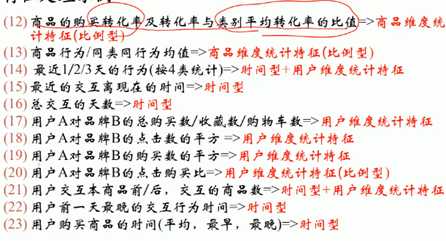 (12) 商品的购买转化率及转化率与类别平均转化率的比值=>商品维度统
计特征(比例型)
(13) 商品行为/同类同行为均值=>商品维度统计特征(比例型)
(14) 最近1/2/3天的行为(按4类统计)=>时间型+用户维度统计特征
(15) 最近的交互离现在的时间=>时间型
(16) 总交互的天数=>时间型
(17) 用户A对品牌B的总购买数/收藏数/购物车数=>用户维度统计特征
(18) 用户A对品牌B的点击数的平方 =>用户维度统计特征
(19) 用户A对品牌B的购买数的平方=>用户维度统计特征
(20) 用户A对品牌B的点击购买比=>用户维度统计特征(比例型)
(21) 用户交互本商品前/后，交互的商品数=>时间型+用户维度统计特征
(22) 用户前一天最晚的交互行为时间=>时间型
(23) 用户购买商品的时间(平均，最早，最晚)=>时间型